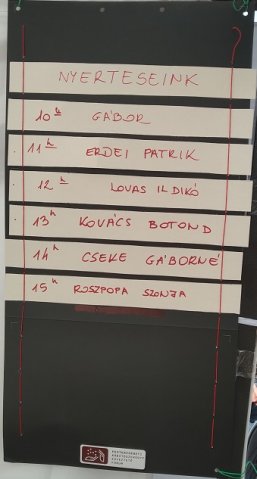 NYERTESEINK
10h GÁBOR
11h ERDEI PATRIK
12h LOVAS ILDIKÓ
13h KOVÁCS BOTOND
14h CSEKE GÁBORNÉ
15h ROSZPOPA SZONJA